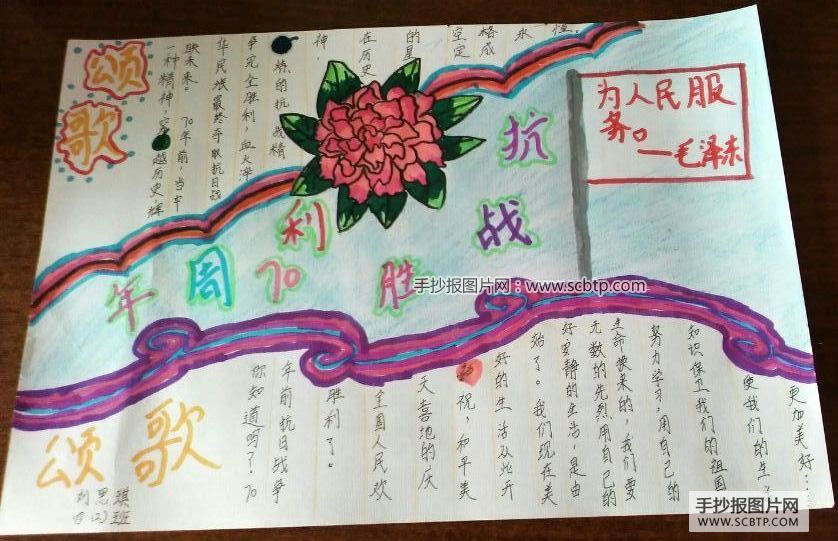 颂歌
一种精神,它超越历史,辉
映未来。70年前,当中
华民族最终夺取抗日战
争完全胜利,血火淬
炼的抗战精
神,
在历史
的星
空定
格成
永
恒.
抗战胜利70周年
为人民服
务。
——毛泽东
手抄报图片网:www.scbtp.com
颂歌
你知道吗?70
年前抗日战争
胜利了。
全国人民欢
天喜地的庆
祝,和平美
好的生活从此开
始了。我们现在美
好安静的生活,是由
无数的先烈用自己的
生命换来的,我们要
努力学习,用自己的
知识保卫我们的祖国
使我们的生
更加美好……
刘思琪
(2)班
手抄报图片网
WWW.SCBTP.COM